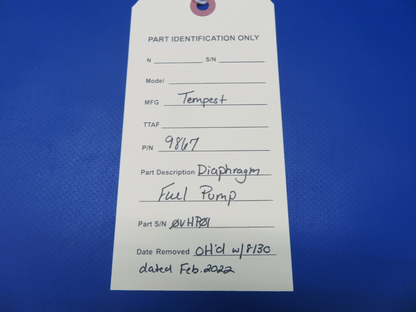 PART IDENTIFICATION ONLY
N ____________ S/N ____________
Model ____________
MFG Tempest
TTAF ____________
P/N 9867
Part Description Diaphragm
Fuel Pump
Part S/N ØVHPØ1
Date Removed OH'd w/8130
dated Feb. 2022